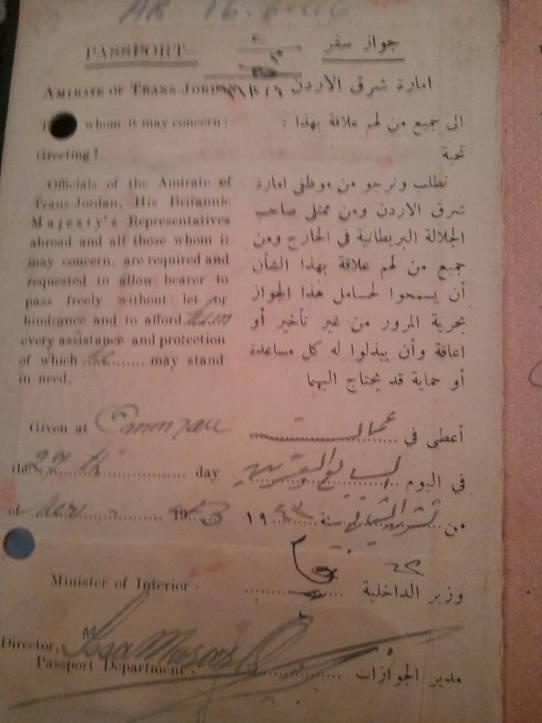 PASSPORT
جواز سفر
AMIRATE OF TRANS-JORDAN
امارة شرق الاردن
whom it may concern:
الى جميع من لهم علاقة بهذا :
Greeting!
تحية
Officials of the Amirate of
Trans-Jordan, His Britannic
Majesty's Representatives
abroad and all those whom it
may concern, are required and
requested to allow bearer to
pass freely without let or
hindrance and to afford him
every assistance and protection
of which he........ may stand
in need.
نطلب ونرجو من موظفى امارة
شرق الاردن ومن ممثلى صاحب
الجلالة البريطانية فى الخارج ومن
جميع من لهم علاقة بهذا الشأن
أن يسمحوا لحامل هذا الجواز
بحرية المرور من غير تأخير أو
اعاقة وأن يبذلوا له كل مساعدة
أو حماية قد يحتاج اليها
Given at Amman
أعطى فى عمان
the 27th day
فى اليوم السابع والعشرين
of Nov. 1943
من تشرين الثانى سنة ١٩٤٣
Minister of Interior
وزير الداخلية
Director,
Passport Department
مدير الجوازات